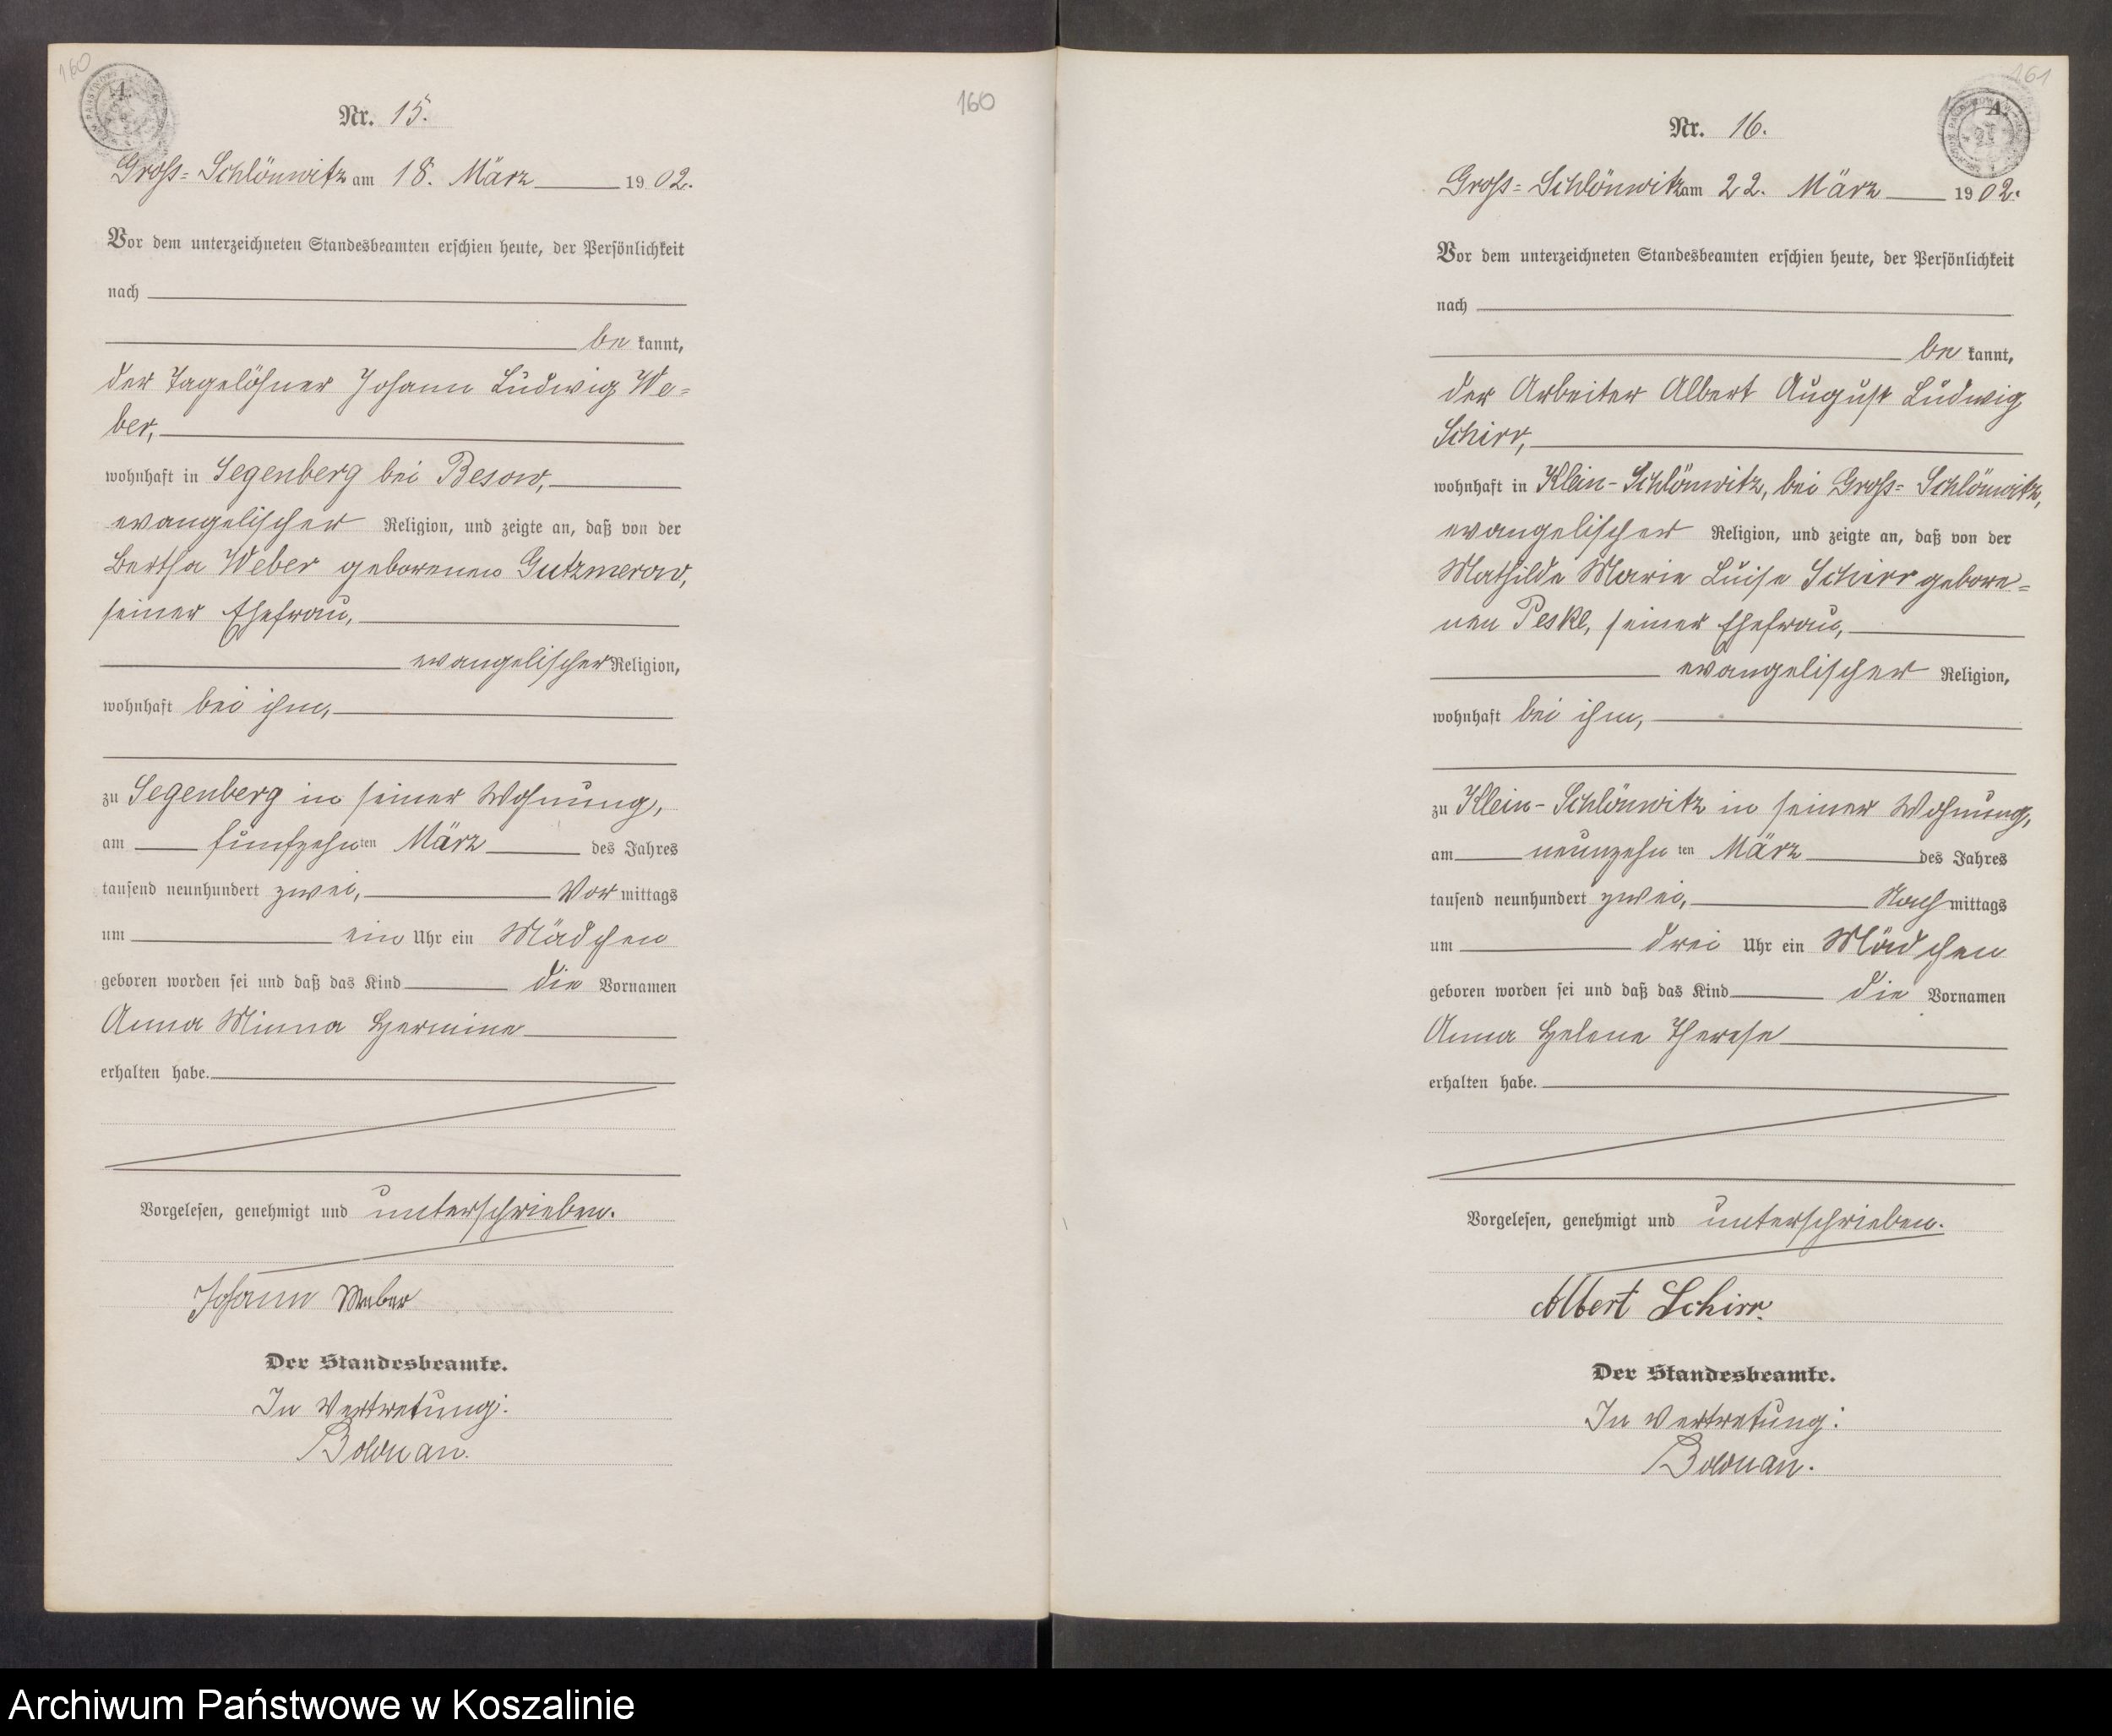 160
A.
Nr. 15.
160
Gross-Schlönwitz am 18. März 1902.
Vor dem unterzeichneten Standesbeamten erschien heute, der Persönlichkeit
nach
be kannt,
der Tagelöhner Johann Ludwig We-
ber,
wohnhaft in Segenberg bei Besow,
evangelischer Religion, und zeigte an, daß von der
Bertha Weber geborenen Gutzmerow,
seiner Ehefrau,
evangelischer Religion,
wohnhaft bei ihm,
zu Segenberg in seiner Wohnung,
am fünfzehnten März des Jahres
tausend neunhundert zwei, Vormittags
um ein Uhr ein Mädchen
geboren worden sei und daß das Kind die Vornamen
Anna Minna Hermine
erhalten habe.
Vorgelesen, genehmigt und unterschrieben.
Johann Weber
Der Standesbeamte.
In Vertretung:
161
A.
Nr. 16.
Gross-Schlönwitz am 22. März 1902.
Vor dem unterzeichneten Standesbeamten erschien heute, der Persönlichkeit
nach
be kannt,
der Arbeiter Albert August Ludwig
Schirr,
wohnhaft in Klein-Schlönwitz, bei Gross-Schlönwitz,
evangelischer Religion, und zeigte an, daß von der
Mathilde Marie Luise Schirr gebore-
nen Peske, seiner Ehefrau,
evangelischer Religion,
wohnhaft bei ihm,
zu Klein-Schlönwitz in seiner Wohnung,
am neunzehnten März des Jahres
tausend neunhundert zwei, Nachmittags
um drei Uhr ein Mädchen
geboren worden sei und daß das Kind die Vornamen
Anna Helene Therese
erhalten habe.
Vorgelesen, genehmigt und unterschrieben.
Albert Schirr.
Der Standesbeamte.
In Vertretung:
Archiwum Państwowe w Koszalinie